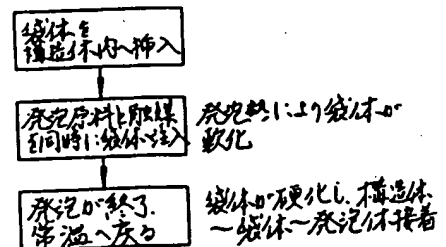 袋体を
構造体内へ挿入
発泡原料と触媒
を同時に袋体へ注入
発泡熱により袋体が
軟化
発泡が終了、
常温へ戻る
袋体が硬化し、構造体
〜袋体〜発泡体接着